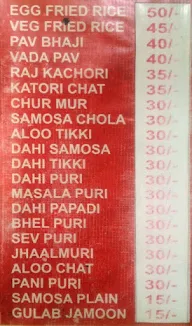 EGG FRIED RICE 50/-
VEG FRIED RICE 45/-
PAV BHAJI 40/-
VADA PAV 40/-
RAJ KACHORI 35/-
KATORI CHAT 35/-
CHUR MUR 30/-
SAMOSA CHOLA 30/-
ALOO TIKKI 30/-
DAHI SAMOSA 30/-
DAHI TIKKI 30/-
DAHI PURI 30/-
MASALA PURI 30/-
DAHI PAPADI 30/-
BHEL PURI 30/-
SEV PURI 30/-
JHAALMURI 30/-
ALOO CHAT 30/-
PANI PURI 30/-
SAMOSA PLAIN 15/-
GULAB JAMOON 15/-